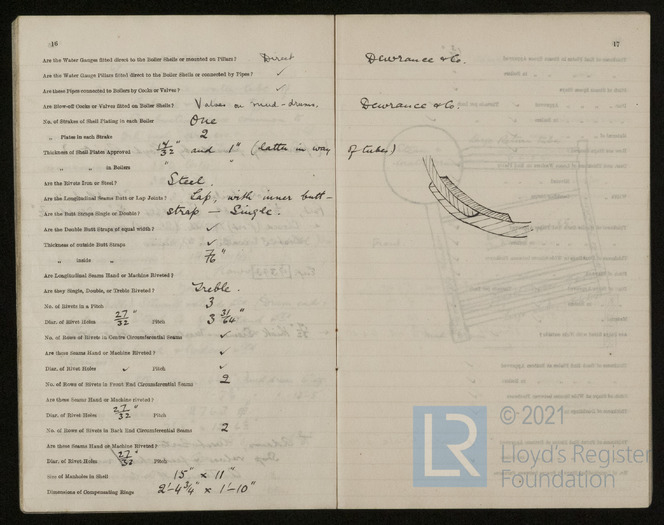 16
17
Are the Water Gauges fitted direct to the Boiler Shells or mounted on Pillars? Direct Dewrance & Co.
Are the Water Gauge Pillars fitted direct to the Boiler Shells or connected by Pipes? ✓
Are these Pipes connected to Boilers by Cocks or Valves? ✓
Are Blow-off Cocks or Valves fitted on Boiler Shells? Valves on mud-drums. Dewrance & Co.
No. of Strakes of Shell Plating in each Boiler One
„ Plates in each Strake 2
Thickness of Shell Plates Approved 17/32" and 1" (latter in way of tubes)
„ „ „ in Boilers " "
Are the Rivets Iron or Steel? Steel.
Are the Longitudinal Seams Butt or Lap Joints? Lap, with inner butt-
Are the Butt Straps Single or Double? strap — Single.
Are the Double Butt Straps of equal width? ✓
Thickness of outside Butt Straps ✓
„ inside „ 7/16"
Are Longitudinal Seams Hand or Machine Riveted?
Are they Single, Double, or Treble Riveted? Treble.
No. of Rivets in a Pitch 3
Diar. of Rivet Holes 27/32" Pitch 3 31/64"
No. of Rows of Rivets in Centre Circumferential Seams ✓
Are these Seams Hand or Machine Riveted? ✓
Diar. of Rivet Holes ✓ Pitch ✓
No. of Rows of Rivets in Front End Circumferential Seams 2
Are these Seams Hand or Machine Riveted?
Diar. of Rivet Holes 27/32" Pitch
No. of Rows of Rivets in Back End Circumferential Seams 2
Are these Seams Hand or Machine Riveted?
Diar. of Rivet Holes 27/32" Pitch
Size of Manholes in Shell 15" x 11"
Dimensions of Compensating Rings 2'-4¾" x 1'-10"
LR
© 2021
Lloyd's Register
Foundation